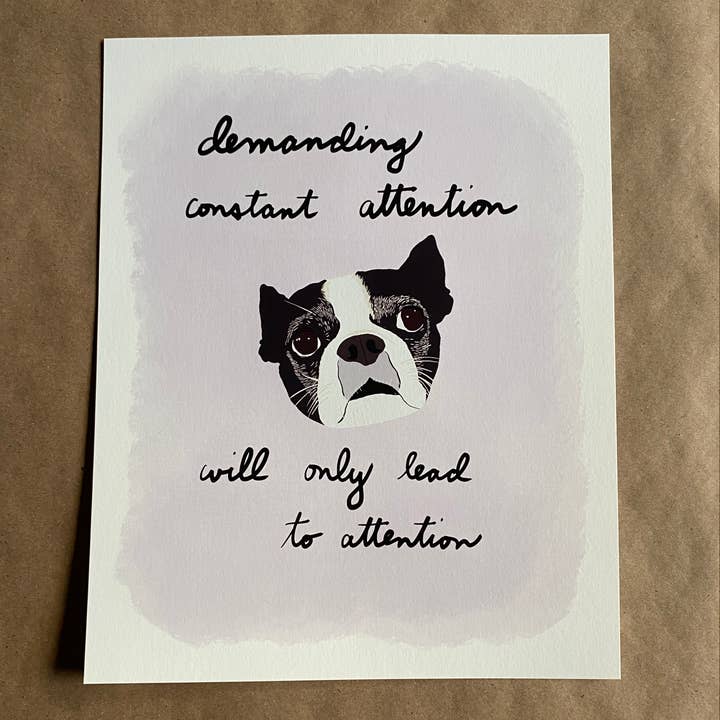 demanding
constant attention
will only lead
to attention